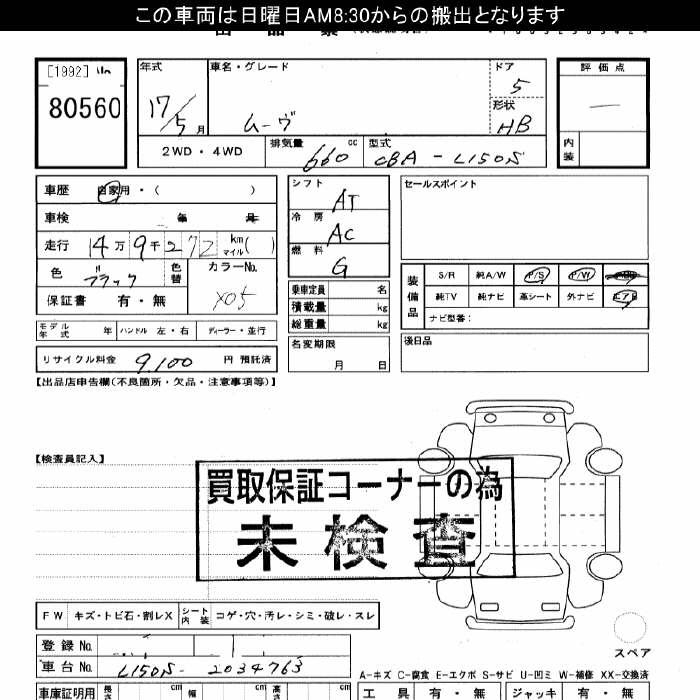 この車両は日曜日AM8:30からの搬出となります
[1992]
80560
年式
17/5月
車名・グレード
ムーヴ
ドア
5
形状
HB
評価点
内装
2WD・4WD
排気量
660 cc
型式
CBA-L150S
車歴 自家用・( )
車検 年 月
走行 14万9千272 km マイル( )
色 ブラック 色替
カラーNo. X05
保証書 有・無
モデル年式 年 ハンドル 左・右 ディーラー・並行
リサイクル料金 9,100 円 預託済
シフト AT
冷房 AC
燃料 G
乗車定員 名
積載量 kg
総重量 kg
名変期限
月 日
セールスポイント
装備品
S/R 純A/W P/S P/W
純TV 純ナビ 革シート 外ナビ エアB
ナビ型番:
後日品
【出品店申告欄(不良箇所・欠品・注意事項等)】
【検査員記入】
買取保証コーナーの為
未検査
FW キズ・トビ石・割レX シート内装 コゲ・穴・汚レ・シミ・破レ・スレ
登録No.
車台No. L150S-2034763
スペア
A-キズ C-腐食 E-エクボ S-サビ U-凹ミ W-補修 XX-交換済
車庫証明用 長さ cm 幅 cm 高さ cm
工具 有・無 ジャッキ 有・無